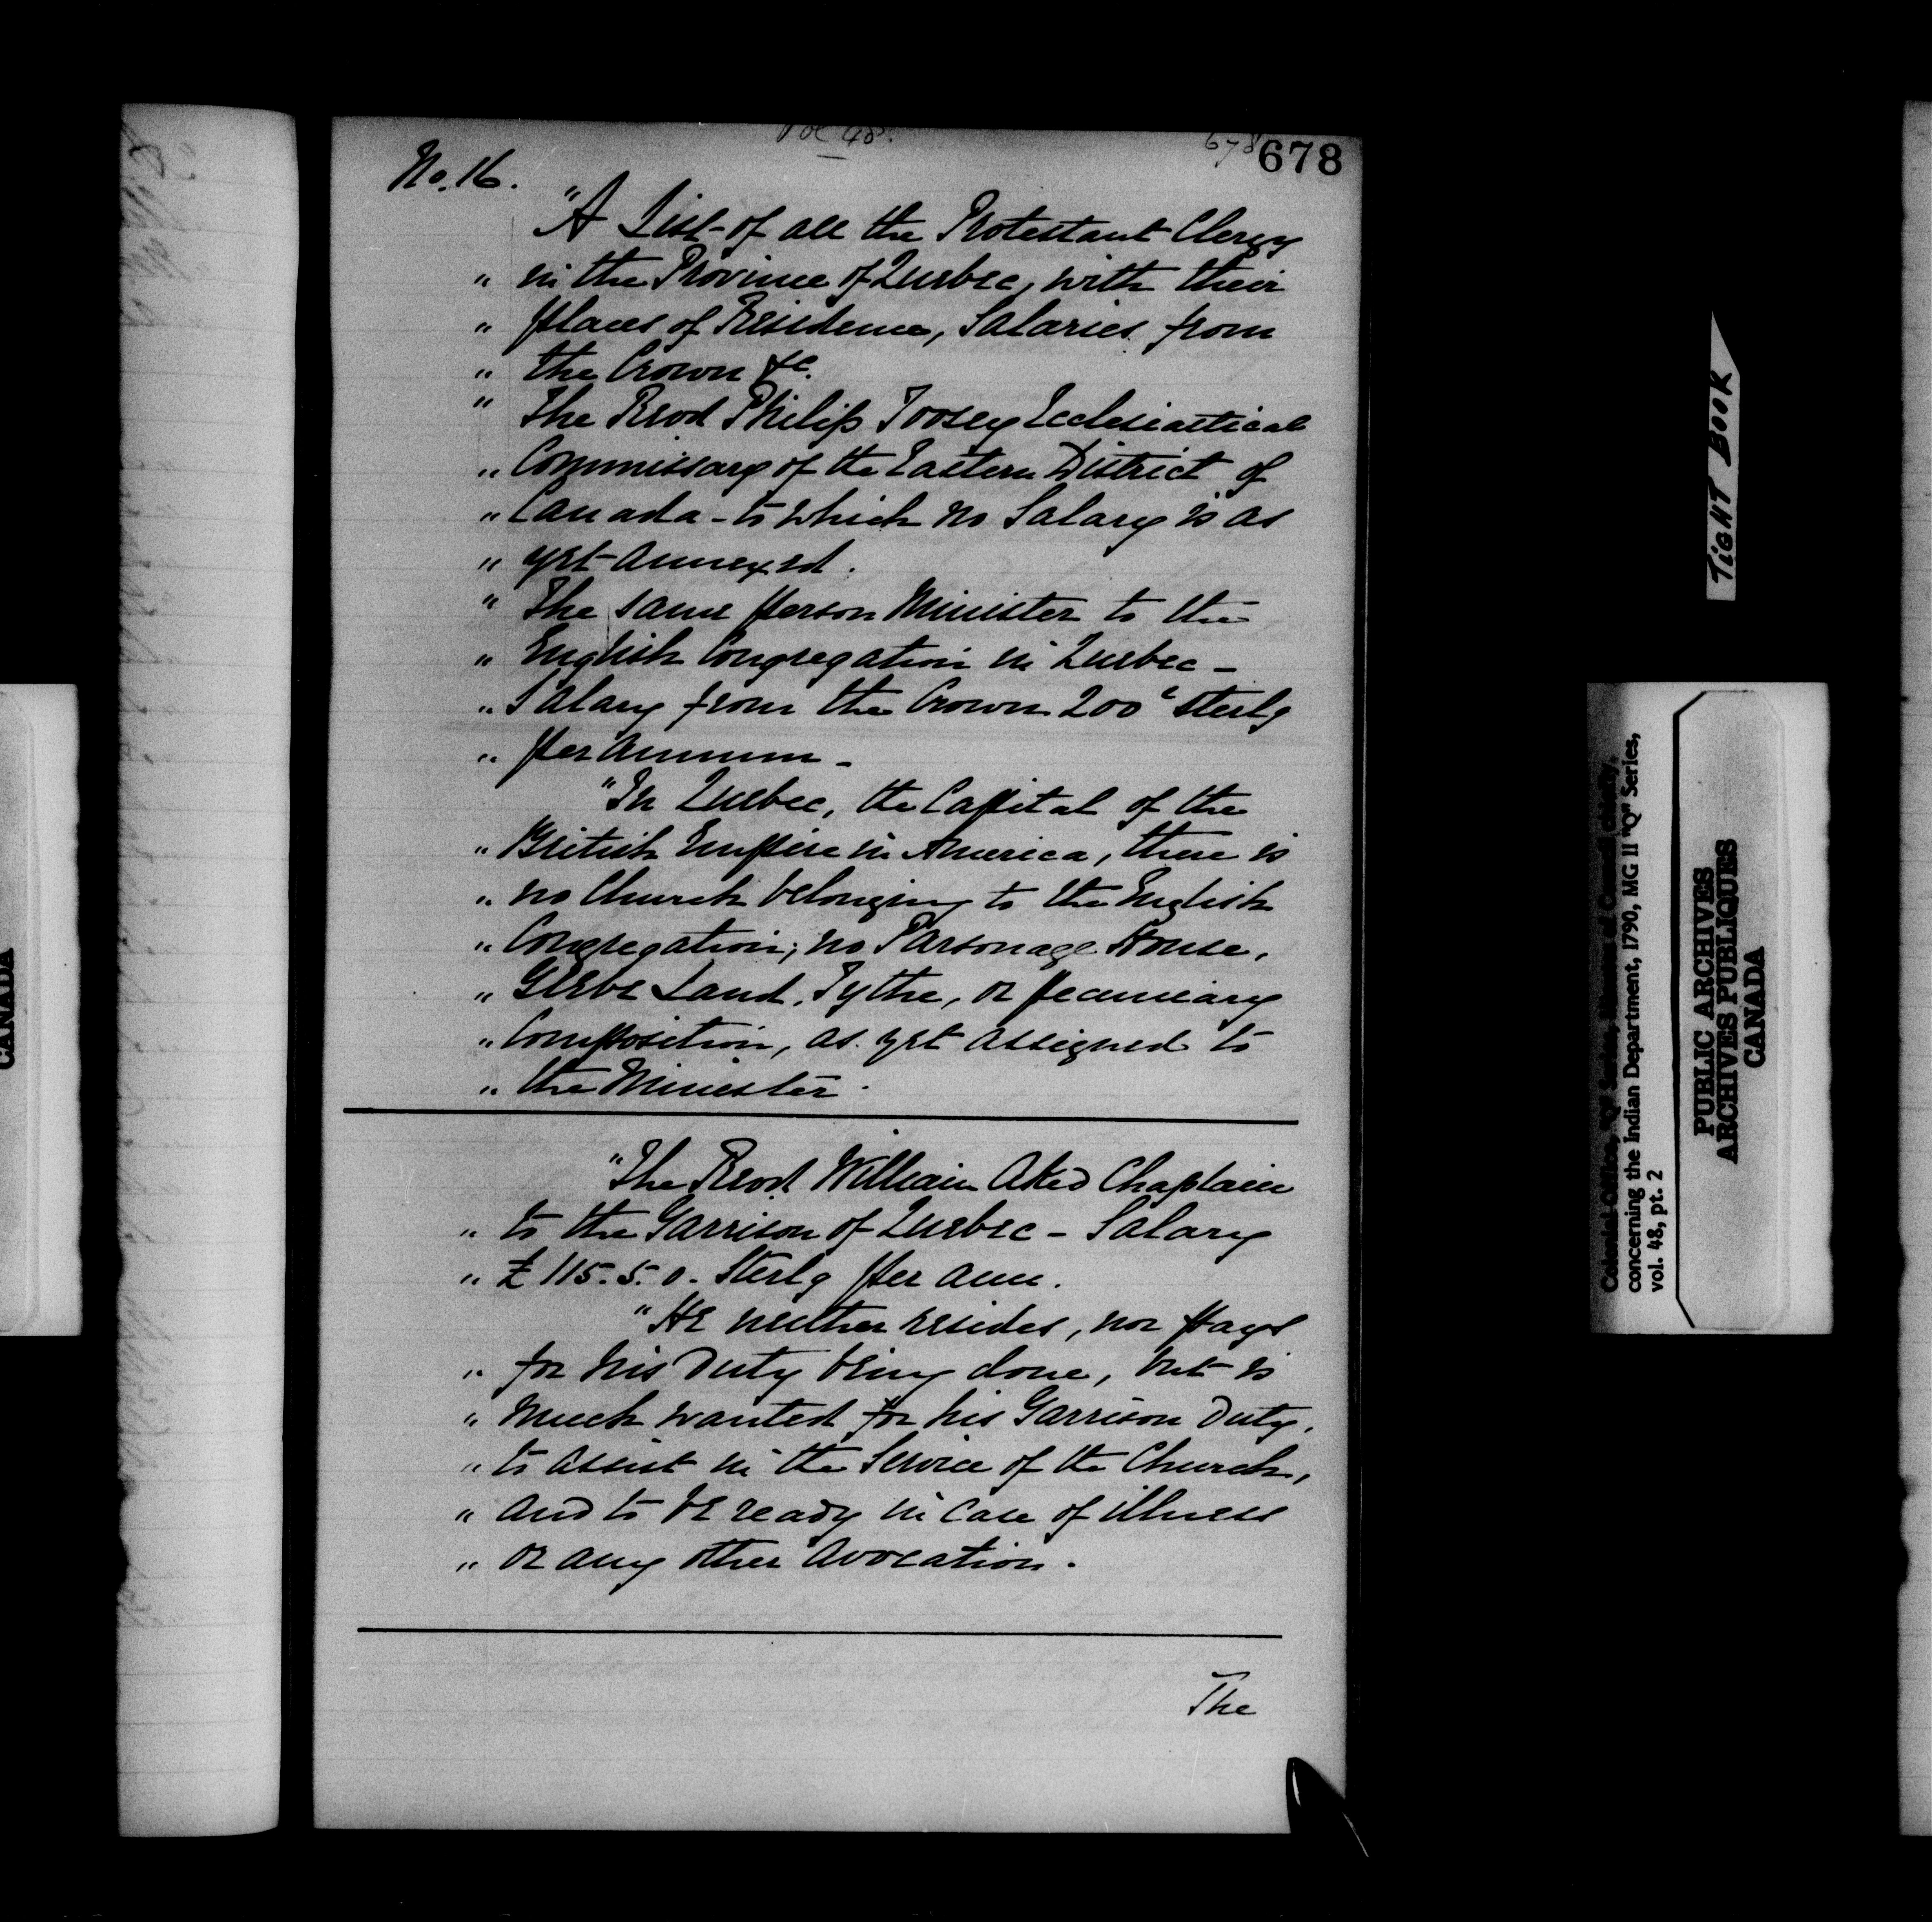 Vol 48.
678
678
No. 16.
"A List of all the Protestant Clergy
" in the Province of Quebec, with their
" places of Residence, Salaries from
" the Crown &c.
" The Revd Philip Toosey Ecclesiastical
" Commissary of the Eastern District of
" Canada - to which no Salary is as
" yet annexed.
" The same person Minister to the
" English Congregation in Quebec -
" Salary from the Crown 200£ Sterlg
" per annum -
"In Quebec, the Capital of the
" British Empire in America, there is
" no Church belonging to the English
" Congregation; no Parsonage House,
" Glebe Land, Tythe, or pecuniary
" Composition, as yet assigned to
" the Minister.
"The Revd William Aked Chaplain
" to the Garrison of Quebec - Salary
" £ 115. 5. 0. Sterlg per ann.
"He neither resides, nor pays
" for his Duty being done, but is
" much wanted for his Garrison Duty,
" to assist in the Service of the Church,
" and to be ready in case of illness
" or any other avocation.
The
TIGHT BOOK
Colonial Office, "Q" Series,
concerning the Indian Department, 1790, MG 11 "Q" Series,
vol. 48, pt. 2
PUBLIC ARCHIVES
ARCHIVES PUBLIQUES
CANADA
CANADA